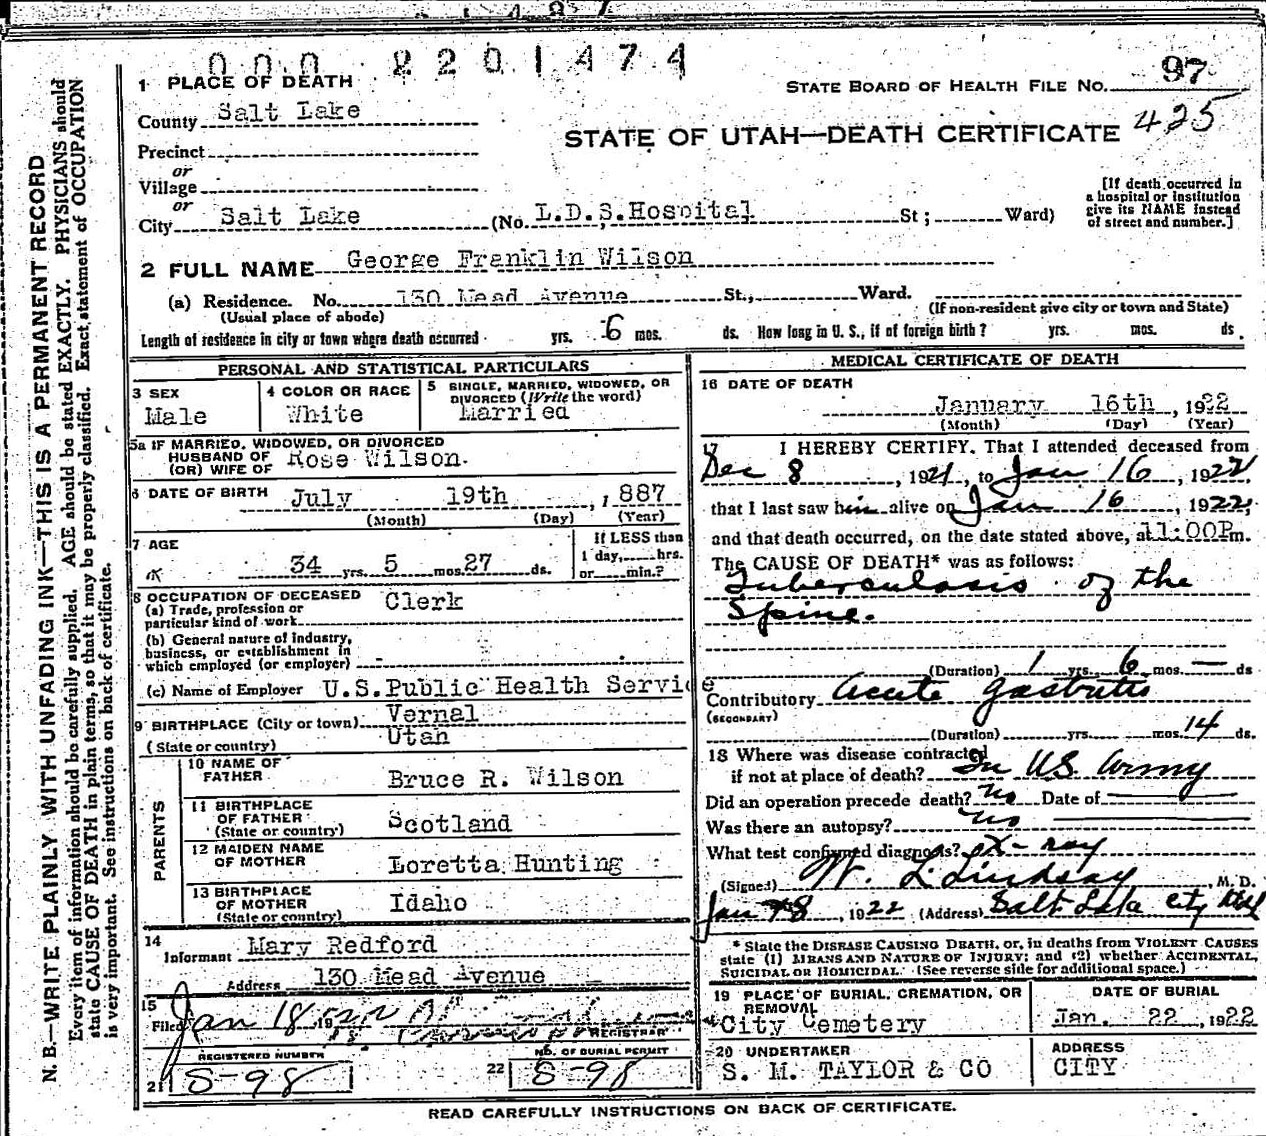 000 2201474
1 PLACE OF DEATH
STATE BOARD OF HEALTH FILE NO. 97
County Salt Lake
STATE OF UTAH—DEATH CERTIFICATE 425
Precinct
or
Village
or
City Salt Lake (No. L.D.S.Hospital St; Ward)
[If death occurred in
a hospital or institution
give its NAME instead
of street and number.]
2 FULL NAME George Franklin Wilson
(a) Residence. No. 130 Mead Avenue St., Ward.
(Usual place of abode) (If non-resident give city or town and State)
Length of residence in city or town where death occurred yrs. 6 mos. ds. How long in U. S., if of foreign birth? yrs. mos. ds.
PERSONAL AND STATISTICAL PARTICULARS
3 SEX
Male
4 COLOR OR RACE
White
5 SINGLE, MARRIED, WIDOWED, OR
DIVORCED (Write the word)
Married
5a IF MARRIED, WIDOWED, OR DIVORCED
HUSBAND OF
(OR) WIFE OF Rose Wilson.
6 DATE OF BIRTH July 19th , 1887
(Month) (Day) (Year)
7 AGE
34 yrs. 5 mos. 27 ds.
If LESS than
1 day, hrs.
or min.?
8 OCCUPATION OF DECEASED
(a) Trade, profession or
particular kind of work Clerk
(b) General nature of industry,
business, or establishment in
which employed (or employer) -
(c) Name of Employer U.S.Public Health Service
9 BIRTHPLACE (City or town) Vernal
(State or country) Utah
PARENTS
10 NAME OF
FATHER Bruce R. Wilson
11 BIRTHPLACE
OF FATHER
(State or country) Scotland
12 MAIDEN NAME
OF MOTHER Loretta Hunting
13 BIRTHPLACE
OF MOTHER
(State or country) Idaho
14
Informant Mary Redford
Address 130 Mead Avenue
15
Filed Jan 18 1922
REGISTRAR
REGISTERED NUMBER
21 S-98
NO. OF BURIAL PERMIT
22 S-98
MEDICAL CERTIFICATE OF DEATH
16 DATE OF DEATH
January 16th , 1922
(Month) (Day) (Year)
17 I HEREBY CERTIFY. That I attended deceased from
Dec 8 , 1921, to Jan 16 , 1922
that I last saw him alive on Jan 16 1922,
and that death occurred, on the date stated above, at 11:00P m.
The CAUSE OF DEATH* was as follows:
Tuberculosis of the
Spine.
(Duration) 1 yrs. 6 mos. — ds
Contributory Acute Gastritis
(SECONDARY)
(Duration) yrs. mos. 14 ds.
18 Where was disease contracted
if not at place of death? In U.S. Army
Did an operation precede death? No Date of
Was there an autopsy? No
What test confirmed diagnosis? X-ray
(Signed) W. L. Lindsay, M. D.
Jan 18 , 1922 (Address) Salt Lake City
* State the DISEASE CAUSING DEATH, or, in deaths from VIOLENT CAUSES
state (1) MEANS AND NATURE OF INJURY; and (2) whether ACCIDENTAL,
SUICIDAL OR HOMICIDAL. (See reverse side for additional space.)
19 PLACE OF BURIAL, CREMATION, OR
REMOVAL
City Cemetery
DATE OF BURIAL
Jan. 22 , 1922
20 UNDERTAKER
S. M. TAYLOR & CO
ADDRESS
CITY
READ CAREFULLY INSTRUCTIONS ON BACK OF CERTIFICATE.
N. B.—WRITE PLAINLY WITH UNFADING INK—THIS IS A PERMANENT RECORD
Every item of information should be carefully supplied. AGE should be stated EXACTLY. PHYSICIANS should
state CAUSE OF DEATH in plain terms, so that it may be properly classified. Exact statement of OCCUPATION
is very important. See instructions on back of certificate.